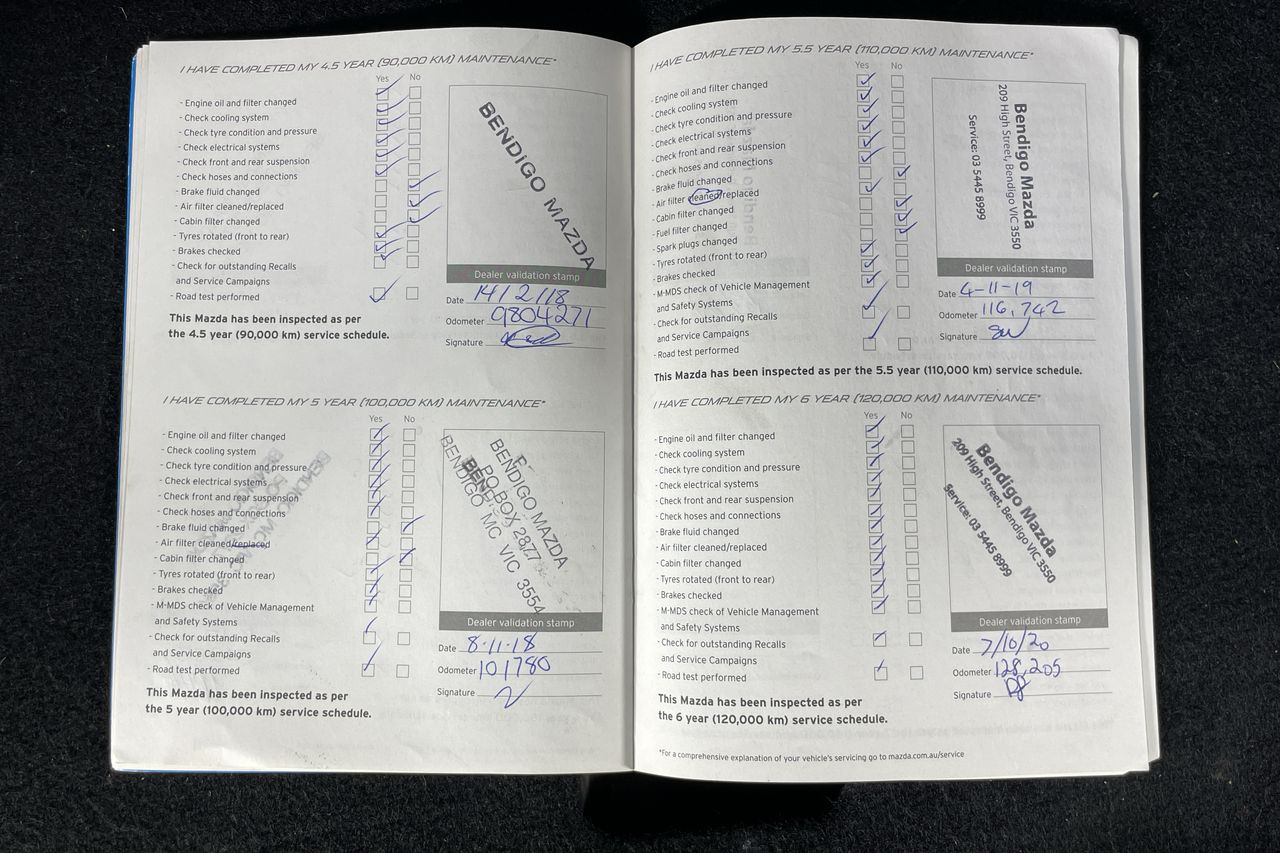 I HAVE COMPLETED MY 4.5 YEAR (90,000 KM) MAINTENANCE*
Yes No
- Engine oil and filter changed
- Check cooling system
- Check tyre condition and pressure
- Check electrical systems
- Check front and rear suspension
- Check hoses and connections
- Brake fluid changed
- Air filter cleaned/replaced
- Cabin filter changed
- Tyres rotated (front to rear)
- Brakes checked
- Check for outstanding Recalls
and Service Campaigns
- Road test performed
This Mazda has been inspected as per
the 4.5 year (90,000 km) service schedule.
BENDIGO MAZDA
Dealer validation stamp
Date 14/2/18
Odometer 9804271
Signature
I HAVE COMPLETED MY 5 YEAR (100,000 KM) MAINTENANCE*
Yes No
- Engine oil and filter changed
- Check cooling system
- Check tyre condition and pressure
- Check electrical systems
- Check front and rear suspension
- Check hoses and connections
- Brake fluid changed
- Air filter cleaned/replaced
- Cabin filter changed
- Tyres rotated (front to rear)
- Brakes checked
- M-MDS check of Vehicle Management
and Safety Systems
- Check for outstanding Recalls
and Service Campaigns
- Road test performed
This Mazda has been inspected as per
the 5 year (100,000 km) service schedule.
BENDIGO MAZDA
PO BOX 2877
BENDIGO MC VIC 3554
Dealer validation stamp
Date 8-11-18
Odometer 101780
Signature
I HAVE COMPLETED MY 5.5 YEAR (110,000 KM) MAINTENANCE*
Yes No
- Engine oil and filter changed
- Check cooling system
- Check tyre condition and pressure
- Check electrical systems
- Check front and rear suspension
- Check hoses and connections
- Brake fluid changed
- Air filter cleaned/replaced
- Cabin filter changed
- Fuel filter changed
- Spark plugs changed
- Tyres rotated (front to rear)
- Brakes checked
- M-MDS check of Vehicle Management
and Safety Systems
- Check for outstanding Recalls
and Service Campaigns
- Road test performed
This Mazda has been inspected as per the 5.5 year (110,000 km) service schedule.
Bendigo Mazda
209 High Street, Bendigo VIC 3550
Service: 03 5445 8999
Dealer validation stamp
Date 4-11-19
Odometer 116,742
Signature
I HAVE COMPLETED MY 6 YEAR (120,000 KM) MAINTENANCE*
Yes No
- Engine oil and filter changed
- Check cooling system
- Check tyre condition and pressure
- Check electrical systems
- Check front and rear suspension
- Check hoses and connections
- Brake fluid changed
- Air filter cleaned/replaced
- Cabin filter changed
- Tyres rotated (front to rear)
- Brakes checked
- M-MDS check of Vehicle Management
and Safety Systems
- Check for outstanding Recalls
and Service Campaigns
- Road test performed
This Mazda has been inspected as per
the 6 year (120,000 km) service schedule.
Bendigo Mazda
209 High Street, Bendigo VIC 3550
Service: 03 5445 8999
Dealer validation stamp
Date 7/10/20
Odometer 128,205
Signature
*For a comprehensive explanation of your vehicle's servicing go to mazda.com.au/service